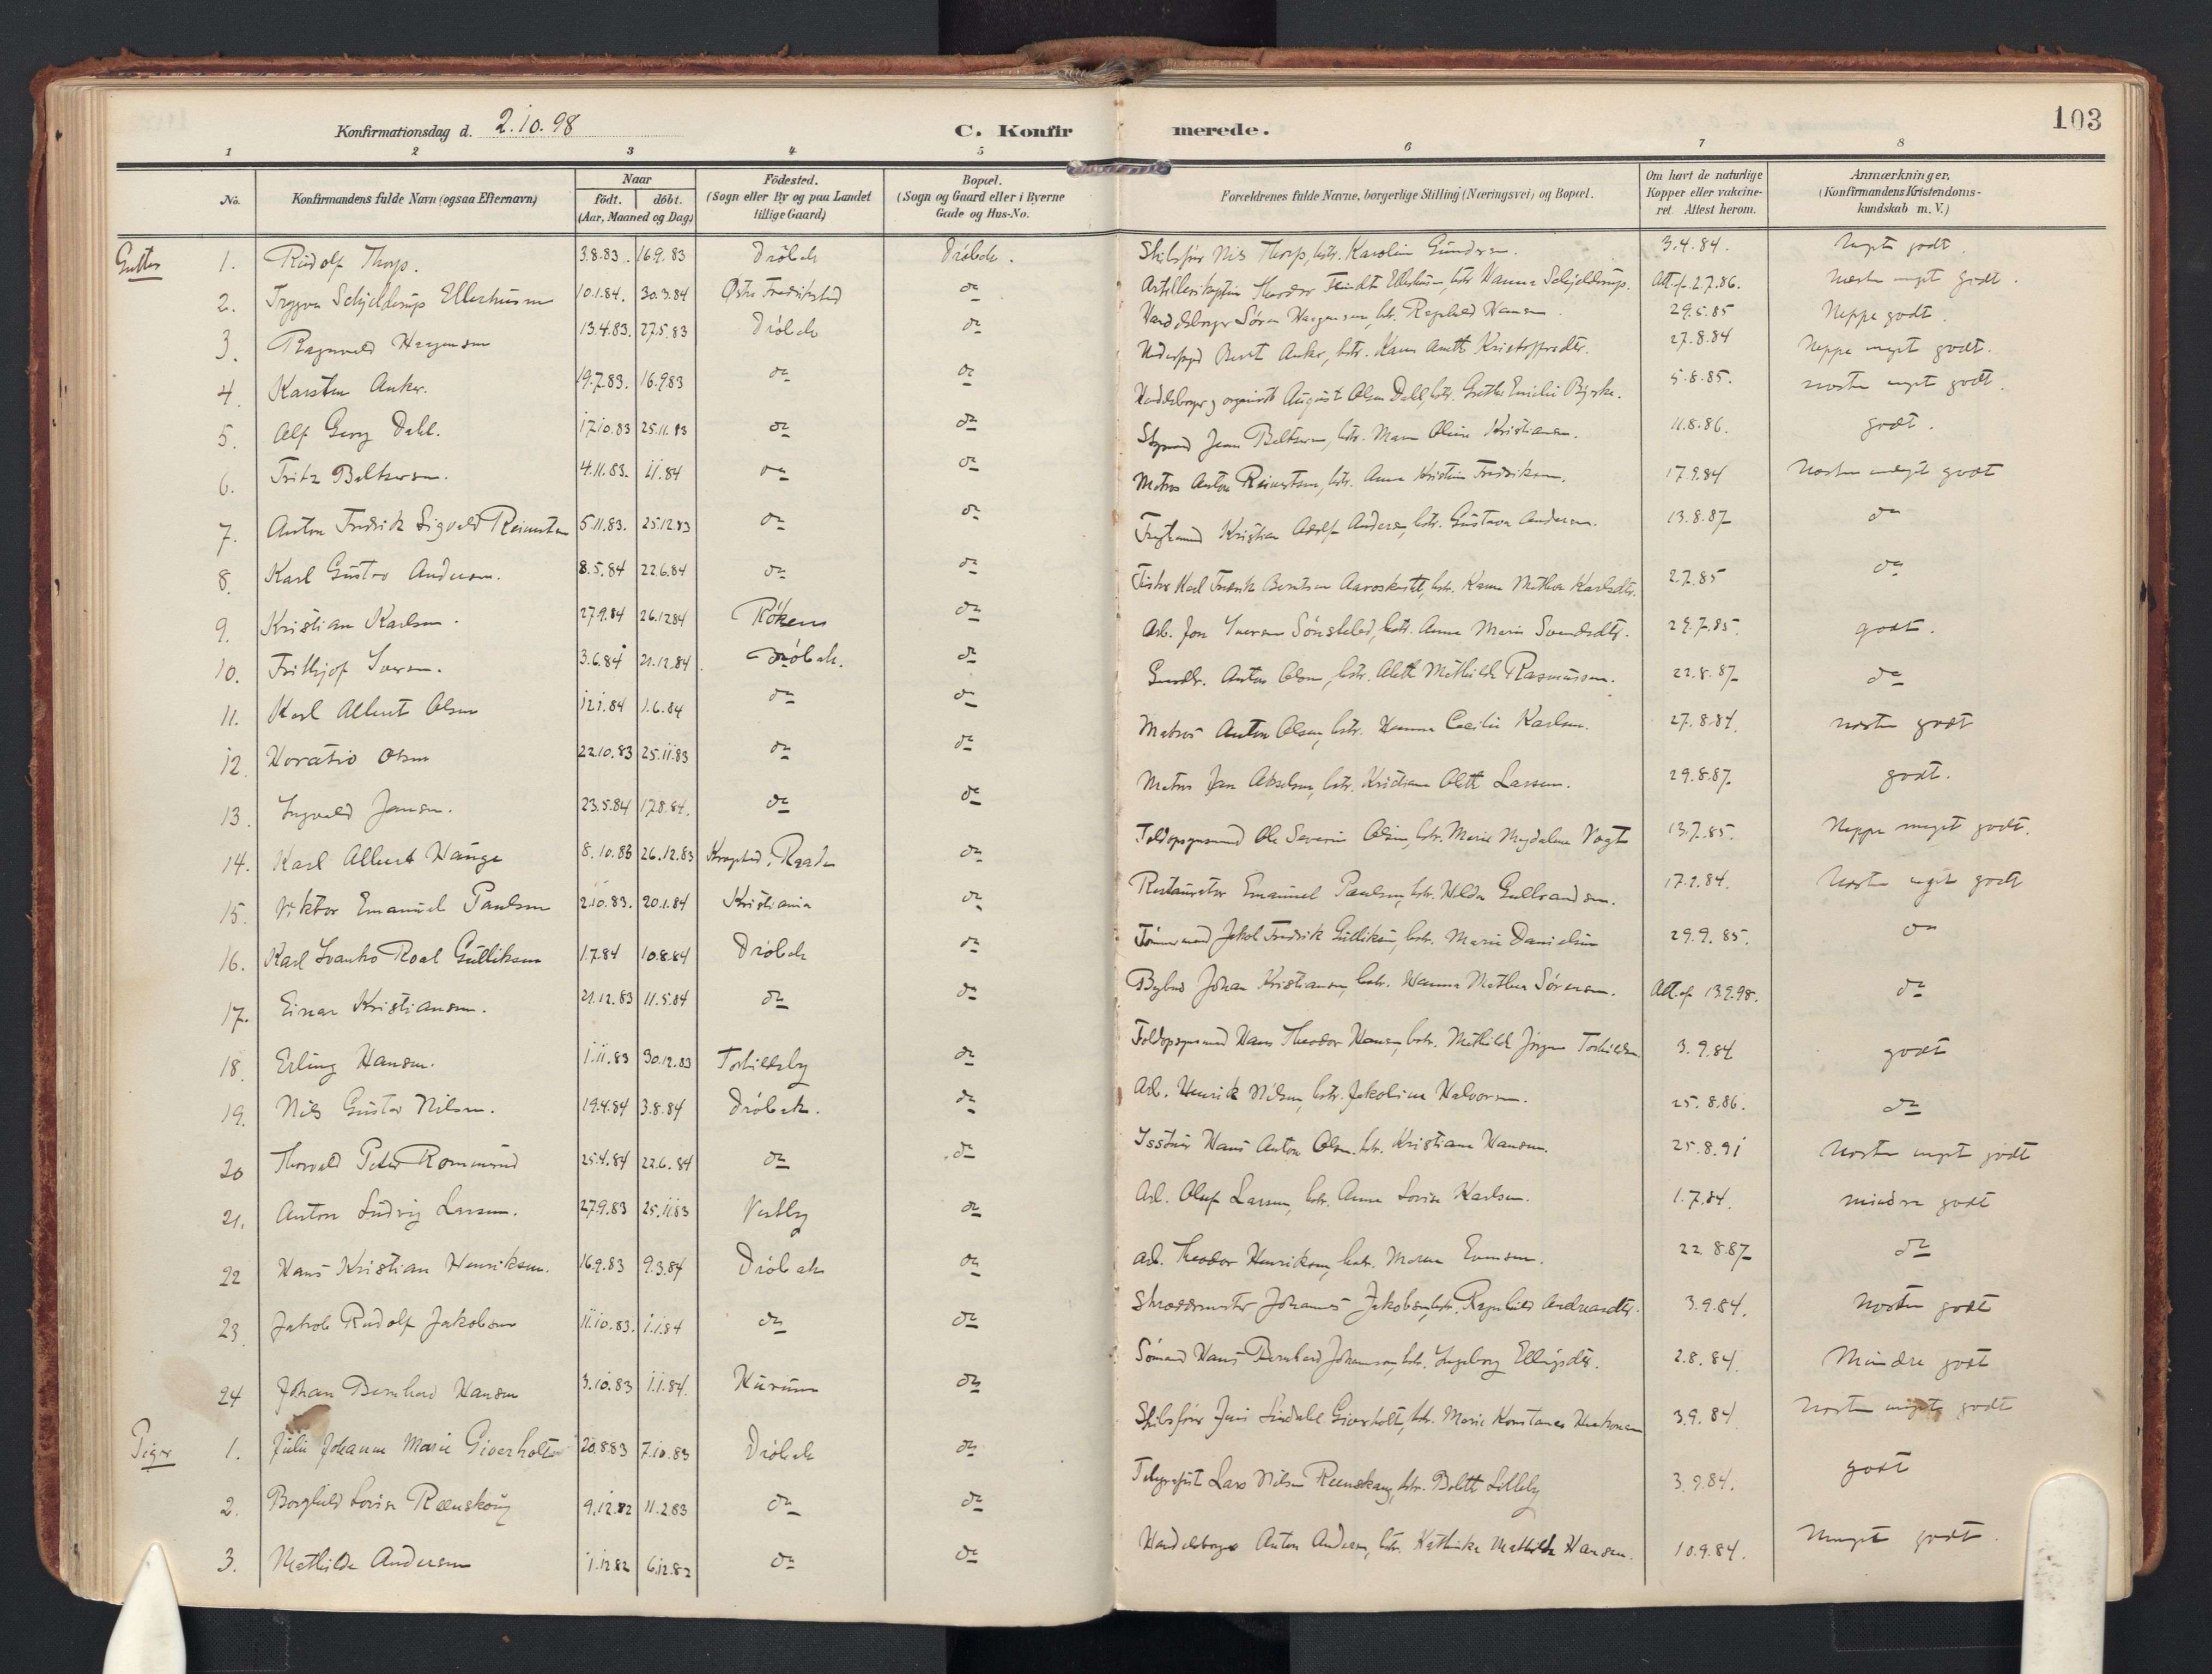 Konfirmationsdag d. 2.10.98
C. Konfir merede.
103
1 2 3 4 5 6 7 8
No. Konfirmandens fulde Navn (ogsaa Efternavn) Naar født. døbt. (Aar, Maaned og Dag) Födested. (Sogn eller By og paa Landet tillige Gaard) Bopæl. (Sogn og Gaard eller i Byerne Gade og Hus-No. Forældrenes fulde Navne, borgerlige Stilling (Næringsvei) og Bopæl. Om havt de naturlige Kopper eller vakcineret. Attest herom. Anmærkninger. (Konfirmandens Kristendomskundskab m. V.)
Gutter 1. Rudolf Thorp. 3.8.83. 16.9.83 Drøbak Drøbak. Skibsfører Nils Thorp, hstr. Karoline Gundersen. 3.4.84. Meget godt.
2. Trygve Schjelderup Ellerhusen 10.1.84. 30.3.84 Østre Fredrikstad do Artillerikaptein Theodor Ellerhusen, hstr. Hanna Schjelderup. Att. af 2.7.86. Næsten meget godt.
3. Ragnvald Haagensen 13.4.83. 27.5.83 Drøbak do Handelsborger Søren Haagensen, hstr. Ragnhild Hansen. 29.5.85 Neppe godt.
4. Karsten Anker. 19.7.83. 16.9.83 do do Anker, hstr. Karen Kristoffersdtr. 27.8.84 Neppe meget godt.
5. Alf Georg Dahl. 17.10.83 25.11.83 do do Handelsborger og organist August Olsen Dahl, hstr. Grethe Emilie Bjerke. 5.8.85. næsten meget godt.
6. Fritz Beltersen. 4.11.83. 1.1.84 do do Styrmand Jens Beltersen, hstr. Maren Oline Kristiansen. 11.8.86. godt.
7. Anton Fredrik Sigvald Reinertsen 5.11.83. 25.12.83 do do Matros Anton Reinertsen, hstr. Anna Kristine Fredriksen. 17.9.84 Næsten meget godt
8. Karl Gustav Andersen. 8.5.84 22.6.84 do do Kristian Adolf Andersen, hstr. Gustava Andersen. 13.8.87 do
9. Kristian Karlsen. 27.9.84 26.12.84 Røken do Fisker Karl Fredrik Berntsen, hstr. Karen Mathea Karlsdtr. 2.7.85 do
10. Frithjof Iversen. 3.6.84 21.12.84. Drøbak. do Arb. Jon Iversen, hstr. Anne Marie Svendsdtr. 27.7.85. godt.
11. Karl Albert Olsen 12.1.84 1.6.84 do do Anton Olsen, hstr. Alette Mathilde Rasmussen. 22.8.87 do
12. Horatio Olsen 22.10.83 25.11.83 do do Matros Anton Olsen, hstr. Hanna Cecilie Karlsen. 27.8.84. næsten godt
13. Ingvald Jansen. 23.5.84 17.8.84. do do Matros Jan Akselsen, hstr. Kristiane Olette Larsen. 29.8.87 godt.
14. Karl Albert Hauge 8.10.83 26.12.83 Kragstad, Raade do Toldopsynsmand Ole Severin Olsen, hstr. Marie Magdalene Vogt 13.7.85. Neppe meget godt.
15. Viktor Emanuel Paulsen 2.10.83. 20.1.84 Kristiania do Restauratør Emanuel Paulsen, hstr. Hilda Gulbrandsen. 17.9.84. Næsten meget godt
16. Karl Ivanko Roal Gulliksen 1.7.84 10.8.84 Drøbak do Tømmermand Jakob Fredrik Gulliksen, hstr. Marie Danielsen 29.9.85. do
17. Einar Kristiansen. 21.12.83 11.5.84 do do Bybud Johan Kristiansen, hstr. Hanna Mathea Sørensen. Att. af 13.9.98. do
18. Erling Hansen. 1.11.83 30.12.83 Torkildsby do Toldopsynsmand Hans Theodor Hansen, hstr. Mathilde Jørgine Torkildsen 3.9.84 godt
19. Nils Gustav Nilsen. 19.4.84 3.8.84 Drøbak. do Arb. Henrik Nilsen, hstr. Jakobine Halvorsen. 25.8.86. do
20 Thorvald Peter Rommerud 25.4.84 22.6.84 do do Hans Anton Olsen, hstr. Kristiane Hansen. 25.8.91 Næsten meget godt
21. Anton Ludvig Larsen. 27.9.83 25.11.83 Vestby do Arb. Oluf Larsen, hstr. Anne Lovise Karlsen. 1.7.84. mindre godt
22 Hans Kristian Henriksen. 16.9.83 9.3.84 Drøbak do Arb. Theodor Henriksen, hstr. Maren Evensen. 22.8.87 do
23. Jakob Rudolf Jakobsen 11.10.83. 1.1.84 do do Skræddermester Johannes Jakobsen, hstr. Ragnhild Andreasdtr. 3.9.84. Næsten godt
24 Johan Bernhard Hansen 3.10.83 1.1.84. Hurum do Sømand Hans Bernhard Johansen, hstr. Ingeborg Ellingsdtr. 2.8.84. Mindre godt
Piger 1. Julie Johanne Marie Giverholt 20.8.83 7.10.83 Drøbak do Skibsfører Jens Lindahl Giverholt, hstr. Marie Konstance Haakonsen 3.9.84 Næsten meget godt
2. Borghild Lovise Reenskoug 9.12.82 11.2.83 do do Telegrafist Lars Nilsen Reenskaug, hstr. Bolette Lilleby 3.9.84. godt
3. Mathilde Andersen 1.12.82 6.12.82 do do Handelsborger Anton Andersen, hstr. Kathinka Mathilde Hansen. 10.9.84. Meget godt.